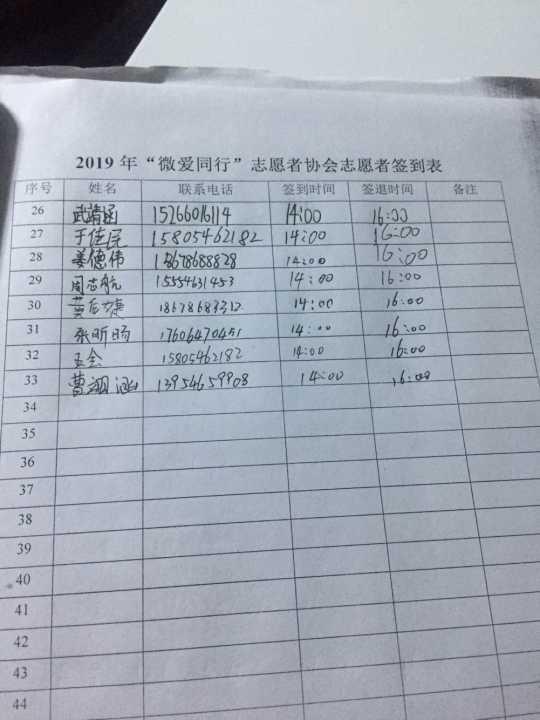 2019 年“微爱同行”志愿者协会志愿者签到表
序号 姓名 联系电话 签到时间 签退时间 备注
26 武靖函 15266016114 14:00 16:00
27 于佳民 15805462182 14:00 16:00
28 姜德伟 18678688828 14:00 16:00
29 周志航 15554631453 14:00 16:00
30 14:00 16:00
31 张昕旸 17606470451 14:00 16:00
32 王金 15805462182 14:00 16:00
33 曹淑涵 13954659908 14:00 16:00
34
35
36
37
38
39
40
41
42
43
44